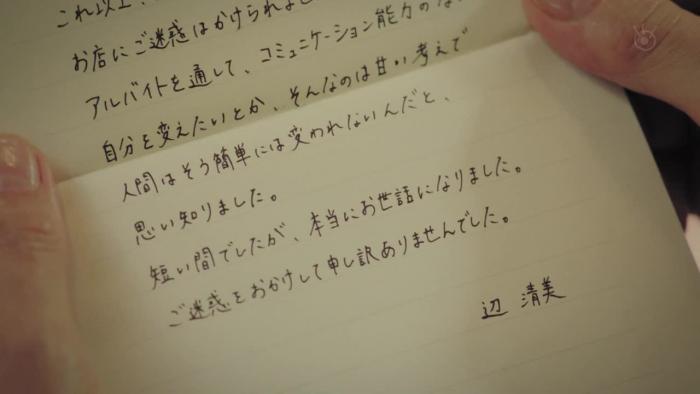 これ以上、
お店にご迷惑はかけられませ
コミュニケーション能力のな
アルバイトを通して、
自分を変えたいとか、そんなのは甘い考えで
人間はそう簡単には変われないんだと、
思い知りました。
短い間でしたが、本当にお世話になりました。
ご迷惑をおかけして申し訳ありませんでした。
辺 清美